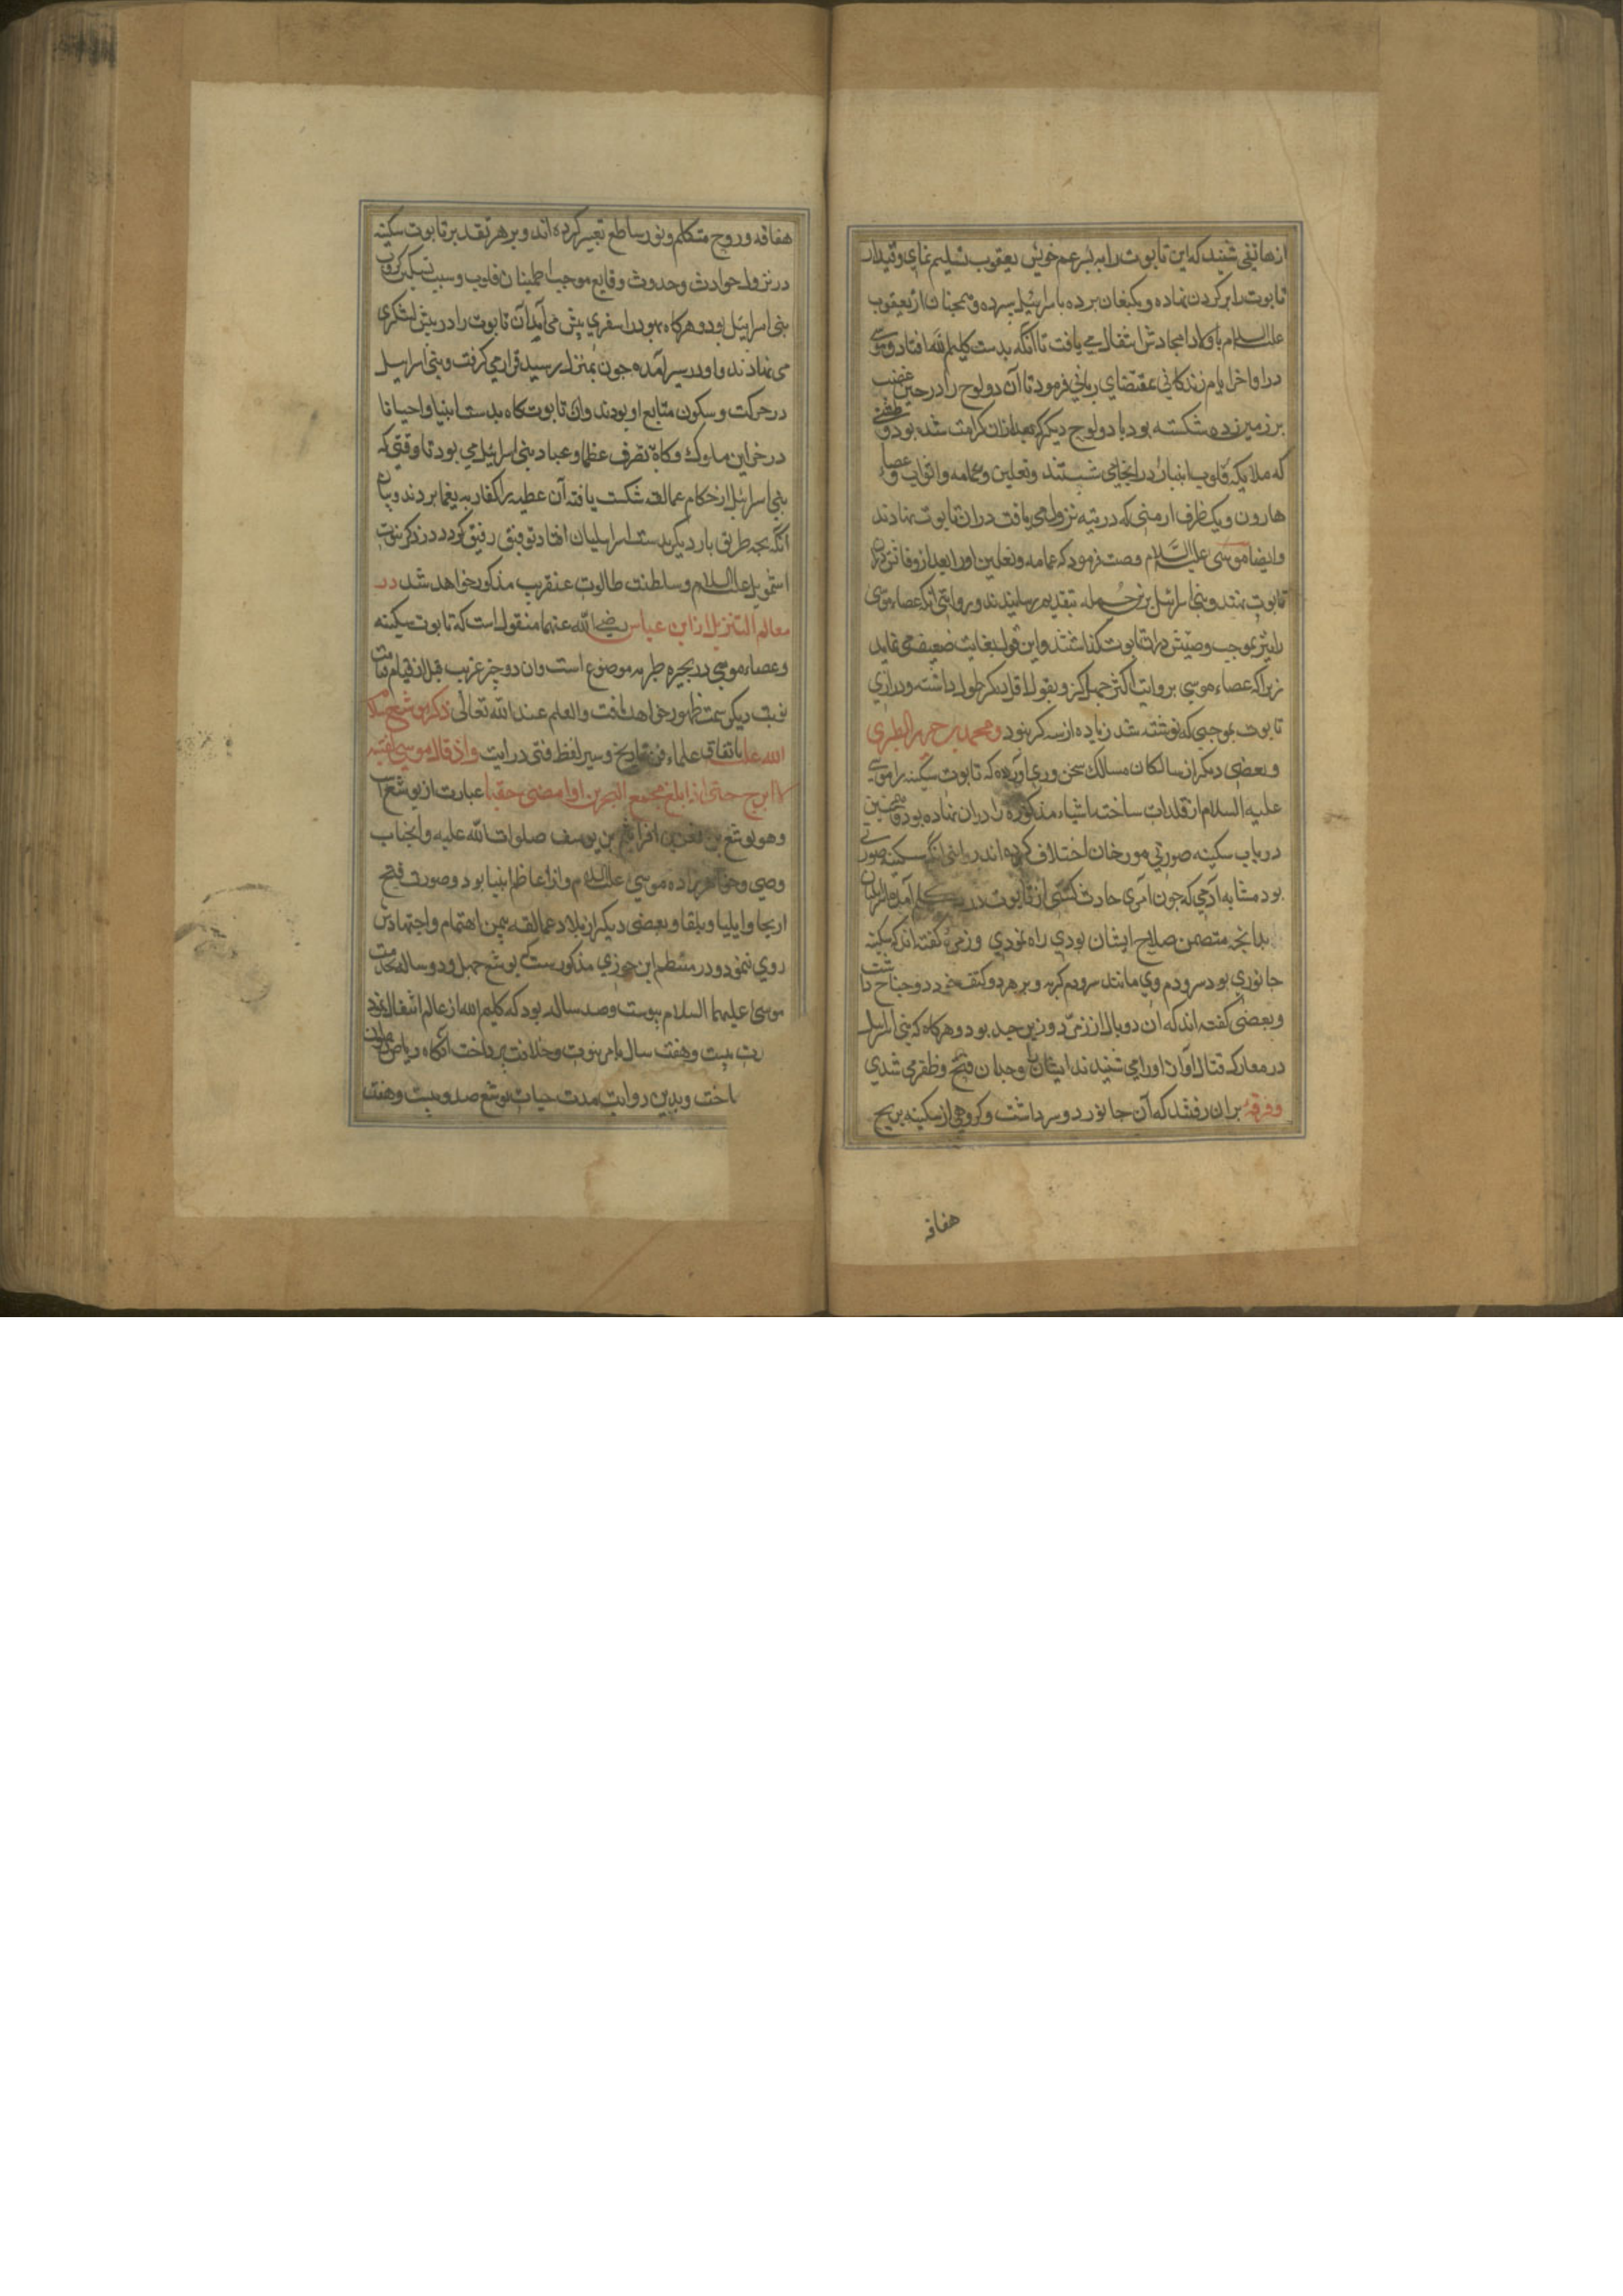 از هاتفی شنید که این تابوت را به پسر عم خویش یعقوب تسلیم نمای وقیدار
تابوت را بر کردن نهاده و بکنعان برده باسرائیل سپرده و همچنان از یعقوب
علیه السلام باولاد امجادش انتقال می یافت تا آنکه بدست کلیم الله افتاد و موسی
در اواخر ایام زندکانی بمقتضای ربانی فرمود تا آن دو لوح را در حین غضب
بر زمین زده شکسته بود با دو لوح دیکر که بعد ازان کرامت شده بود و طشتی
که ملایکه قلوب انبیا را در انجا می شستند و نعلین و عمامه و اثواب و عصاء
هارون و یک ظرف از منی که در تیه نزول می یافت دران تابوت نهادند
وایضا موسی علیه السلام وصیت فرمود که عمامه و نعلین اورا بعد از وفاتش در
تابوت نهند و بنی اسرائیل بتقدیم رسانیدند و روایتی آنکه عصاء موسی
را نیز بموجب وصیتش دران تابوت کذاشتند و این قول بغایت ضعیف می نماید
زیرا که عصاء موسی بروایت اکثر چهل کز و بقول اقل ده کز طول داشته و درازی
تابوت بموجبی که نوشته شد زیاده از سه کز نبود و محمد بن جریر الطبری
و بعضی دیکر از سالکان مسالک سخن وری آورده که تابوت سکینه را موسی
علیه السلام از قلدات ساخته اشیاء مذکوره را دران نهاده بود و همچنین
در باب سکینه صورتی مورخان اختلاف کرده اند رای آنکه سکینه صورتی
بود مشابه آدمی که چون امری حادث کشتی از تابوت در تکلم آمده اسرائیلیان
بدانچه متضمن صلاح ایشان بودی راه نمودی و زمرهٔ کفته اند که سکینه
جانوری بود سر و دم وی مانند سر و دم کربه و بر هر دو کتف خود دو جناح داشت
و بعضی کفته اند که آن دو بال از زمرد و زبرجد بود و هر کاه که بنی اسرائیل
در معارکه قتال آواز اورا می شنیدند ایشان را وجدان فتح و ظفر می شدی
و فرقهٔ بران رفتند که آن جانور دو سر داشت و کروهی از سکینه بریح
هفافه
هفافه و روح متکلم و نور ساطع تعبیر کرده اند و بر هر تقدیر تابوت سکینه
در نزول حوادث و حدوث وقایع موجب اطمینان قلوب و سبب تسکین کروب
بنی اسرائیل بود و هر کاه یهود را سفری پیش می آمد آن تابوت را در پیش لشکری
می نهادند و او در سیر آمده چون بمنزل رسید قرار می کرفت و بنی اسرائیل
در حرکت و سکون متابع او بودند و ان تابوت کاه بدست انبیا و احیانا
در خزاین ملوک و کاه بتصرف عظما و عباد بنی اسرائیل می بود تا وقتی که
بنی اسرائیل از حکام عمالقه شکست یافته آن عطیه را کفار به یغما بردند و بیان
آنکه بچه طریق بار دیکر بدست اسرایلیان افتاد توفیق رفیق کردد در ذکر نبوت
اشمویل علیه السلام و سلطنت طالوت عنقریب مذکور خواهد شد در
معالم التنزیل از ابن عباس رضی الله عنهما منقول است که تابوت سکینه
و عصاء موسی در بحیره طبریه موضوع است و ان دو چیز غریب قبل از قیام قیامت
نوبت دیکر سمت ظهور خواهد یافت والعلم عند الله تعالی ذکر یوشع سلام
الله علیه باتفاق علماء فن تاریخ و سیر لفظ فتی در ایت واذ قال موسی لفتیه
لا ابرح حتی ابلغ مجمع البحرین او امضی حقبا عبارت از یوشع است
وهو یوشع بن نون بن افرائیم بن یوسف صلوات الله علیه و انجناب
وصی و خواهرزاده موسی علیه السلام و از اعاظم انبیا بود و صورت فتح
اریحا و ایلیا و بلقا و بعضی دیکر از بلاد عمالقه بیمن اهتمام و اجتهادش
روی نمود و در منتظم ابن جوزی مذکورست که یوشع چهل و دو ساله بخدمت
موسی علیهما السلام پیوست و صد ساله بود که کلیم الله از عالم انتقال نمود
بیست و هفت سال بامر نبوت و خلافت پرداخت آنکاه ریاض رضوان
ساخت و بدین روایت مدت حیات یوشع صد و بیست و هفت